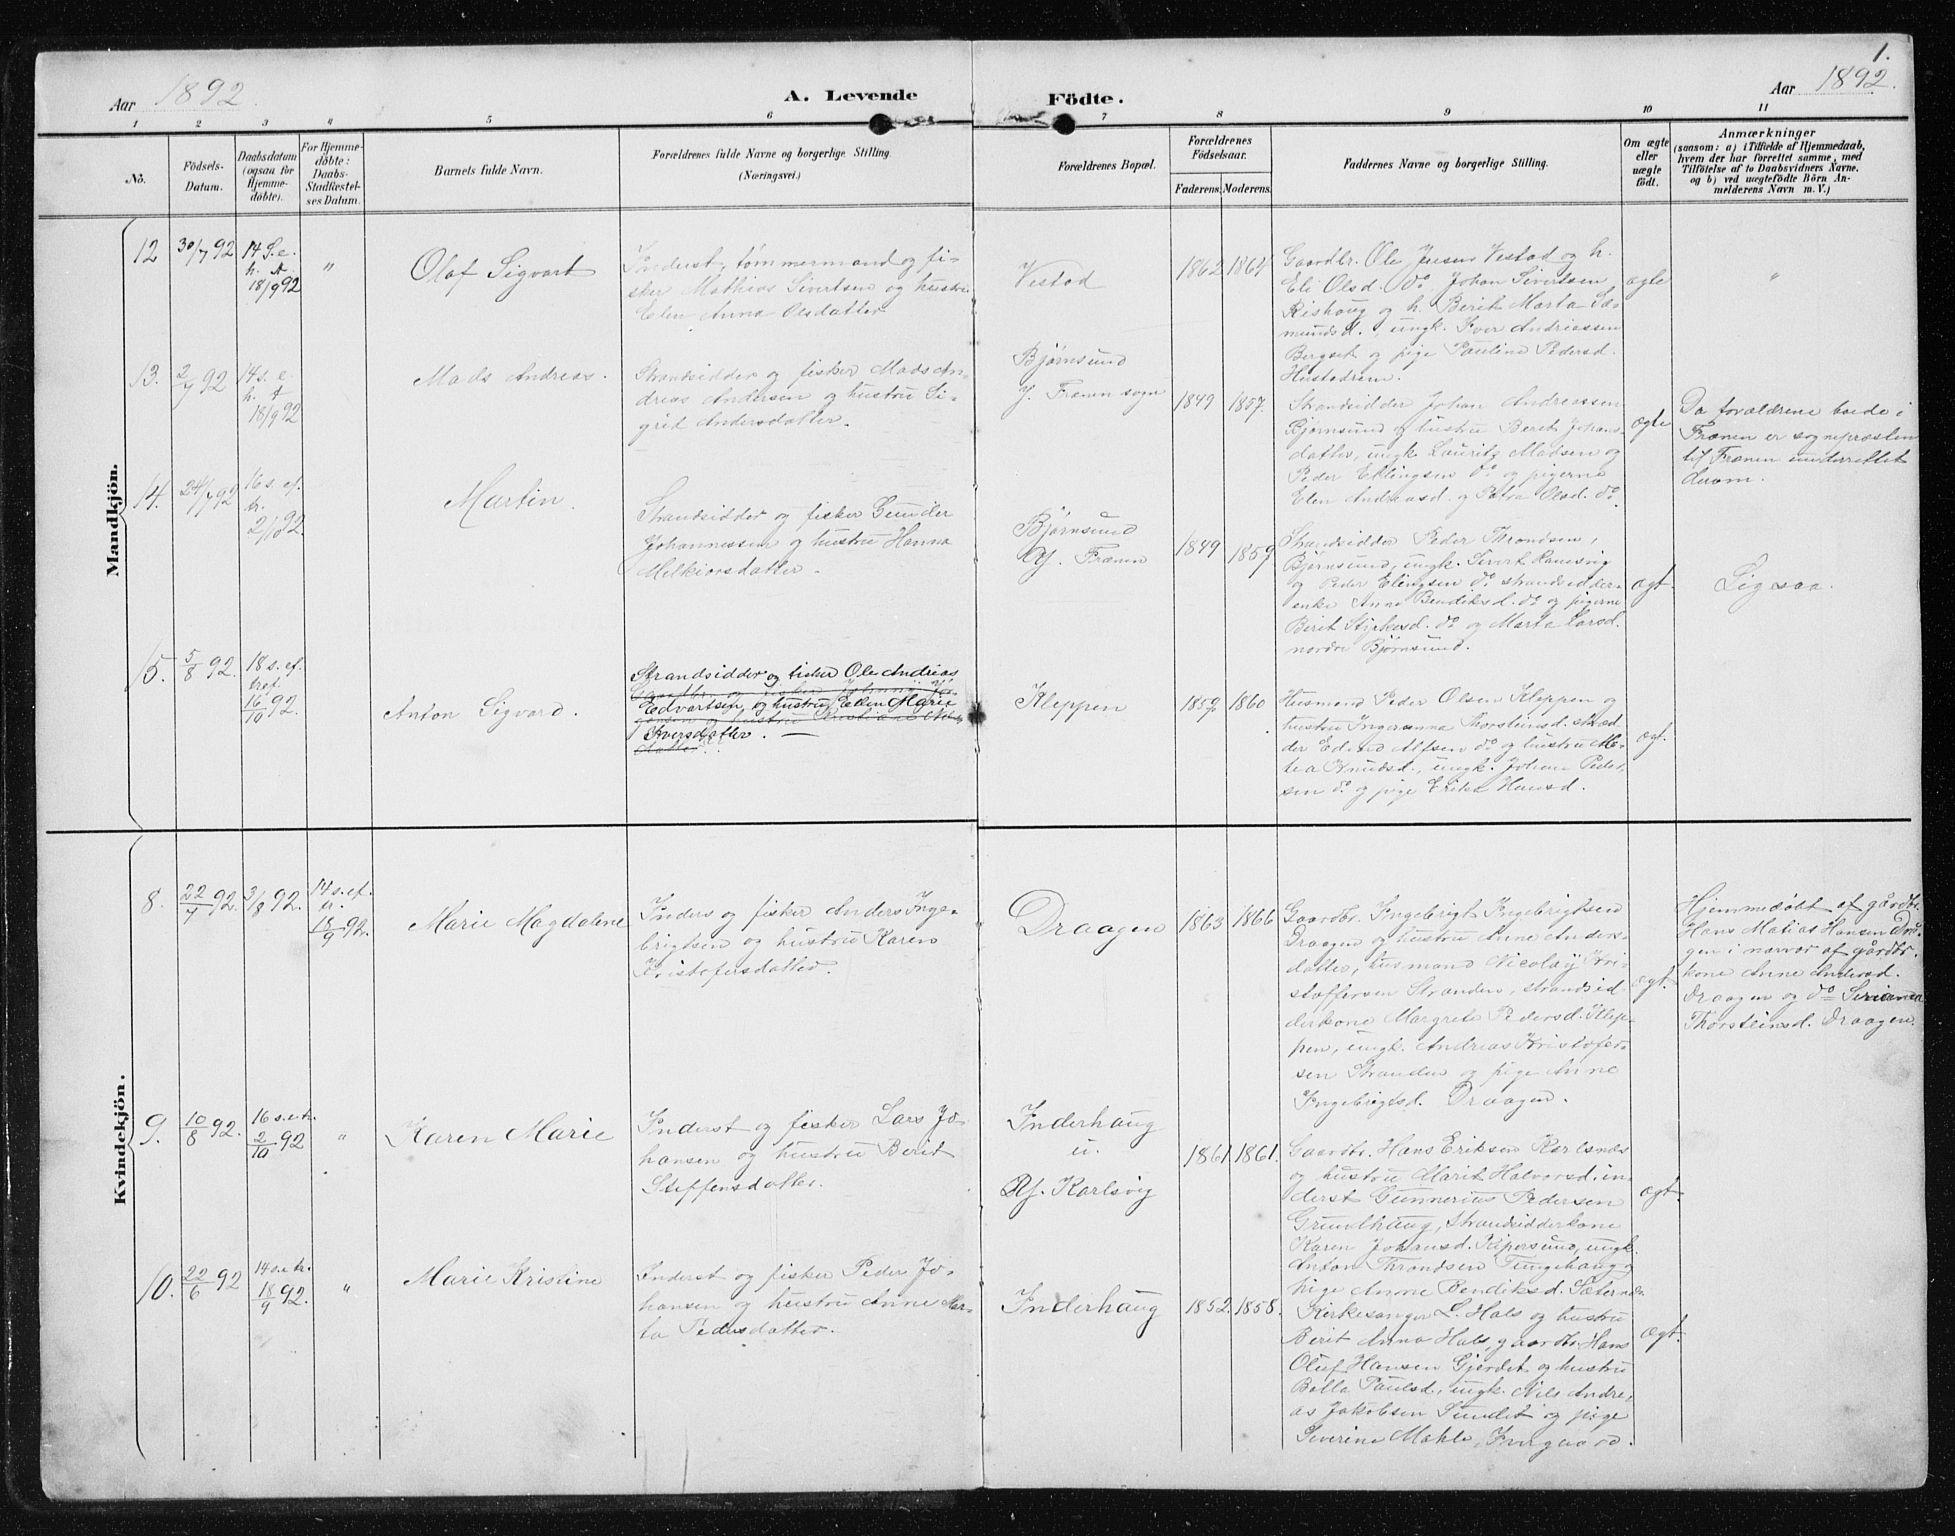 1.
Aar 1892.
A. Levende Födte.
Aar 1892.
1 2 3 4 5 6 7 8 9 10 11
No.
Födsels-
Datum.
Daabsdatum
(ogsaa for
Hjemme-
døbte).
For Hjemme-
døbte:
Daabs-
Stadfæstel-
ses Datum.
Barnets fulde Navn.
Forældrenes fulde Navne og borgerlige Stilling.
(Næringsvei.)
Forældrenes Bopæl.
Forældrenes
Födselsaar.
Faderens. Moderens.
Faddernes Navne og borgerlige Stilling.
Om ægte
eller
uægte
født.
Anmærkninger
(saasom: a) i Tilfælde af Hjemmedaab,
hvem der har forrettet samme, med
Tilföielse af to Daabsvidners Navne.
og b) ved uægtefödte Börn An-
melderens Navn m. V.)
Mandkjön.
12
30/7 92
14 S. e.
18/9 92
"
Olaf Sigvart
Inderst, tømmermand og fi-
sker Mathias Sivertsen og hustru
Elen Anna Olsdatter
Vestad
1862 1864
Gaardbr. Ole Jensen Vestad og h.
Eli Olsd. do. Johan Sivertsen
Rishaug og h. Berit Marta Sæ-
mundsd., ungk. Iver Andriassen
Bergset og pige Pauline Pedersd.
Hustadrem.
ægte
"
13.
2/7 92
14 s. e.
18/9 92
Mads Andreas.
Strandsidder og fisker Mads An-
dreas Andersen og hustru Si-
grid Andersdatter.
Bjørnsund
Y. Frænen sogn
1849 1857.
Strandsidder Johan Andreassen
Bjørnsund og hustru Berit Johans-
datter, ungk. Lauritz Madsen og
Peder Ellingsen do. og pigerne
Elen Andreasd. og Petra Olsd. do.
ægte
Da forældrene boede i
Frænen er sognepræsten
til Frænen underrettet
derom.
14.
24/7 92
16 s. ef.
tr.
2/10 92
Martin.
Strandsidder og fisker Gunder
Johannessen og hustru Hanna
Melkiorsdatter.
Bjørnsund
Y. Frænen
1849 1859
Strandsidder Peder Throndsen,
Bjørnsund, ungk. Sivert Ramsvig
og Peder Ellingsen do. strandsidder-
enke Anne Bendiksd. do. og pigerne
Berit Styrkersd. do. og Marta Larsd.
nordre Bjørnsund.
ægt.
Ligesaa.
15.
5/8 92.
18 s. ef.
tref.
16/10 92.
Anton Sigvard.
Strandsidder og fisker Ole Andreas
Edvartsen og hustru Ellen Marie
Iversdatter. —
Kleppen
1859 1860
Husmand Peder Olsen Kleppen og
hustru Ingeranna Thorsteinsd. skræd-
der Edvard Alfsen do. og hustru Me-
tea Knudsd., ungk. Johan Peder-
sen do. og pige Erika Hansd.
ægt.
Kvindekjön.
8.
22/7 92.
3/8 92.
14 s. ef.
tr.
18/9 92.
Marie Magdalene
Inders og fisker Anders Inge-
brigtsen og hustru Karen
Kristofersdatter.
Draagen
1863 1866
Gaardbr. Ingebrigt Ingebrigtsen
Draagen og hustru Anne Anders-
datter, husmand Nicolay Kri-
stoffersen Stranden, strandsid-
derkone Margrete Pedersd. Klep-
pen, ungk. Andreas Kristofer-
sen Stranden og pige Anne
Ingebrigtsd. Draagen.
ægt.
Hjemmedøbt af gårdbr.
Hans Matias Hansen Draa-
gen i nærvær af gårdbr.
kone Anne Andersd.
Draagen og do. Serianna
Thorsteinsd. Draagen.
9.
10/8 92.
16 s. e. tr.
2/10 92
"
Karen Marie
Inderst og fisker Lars Jo-
hansen og hustru Berit
Steffensdatter.
Inderhaug
u.
Y. Karlsvig
1861 1861.
Gaardbr. Hans Eriksen Karlsnes
og hustru Marit Halvorsd. in-
derst Gunnerius Pedersen
Grundhaug, strandsidderkone
Karen Johansd. Kipersund, ungk.
Anton Throndsen Tungehaug og
pige Anne Bendiksd. Sæternes
ægt.
10.
22/6 92
14 s. e. tr.
18/9 92.
"
Marie Kristine
Inderst og fisker Peder Jo-
hansen og hustru Anne Mar-
ta Pedersdatter.
Inderhaug
1852. 1858.
Kirkesanger L. Hals og hustru
Berit Anna Hals, gaardbr. Hans
Oluf Hansen Gjerdet og hustru
Bolla Paulsd., ungk. Nils Andre-
as Jakobsen Sundet og pige
Severine Mahle, Indrgaard.
ægt.